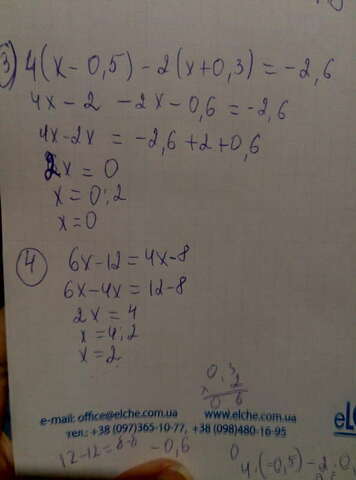 3) 4(x-0,5)-2(x+0,3)=-2,6
4x-2-2x-0,6=-2,6
4x-2x=-2,6+2+0,6
2x=0
x=0:2
x=0
4 6x-12=4x-8
6x-4x=12-8
2x=4
x=4:2
x=2
0,3
x 2
0 6
e-mail: office@elche.com.ua www.elche.com.ua
тел.: +38 (097)365-10-77, +38 (098)480-16-95
12-12=8-8 -0,6
0
4·(-0,5)-2·0